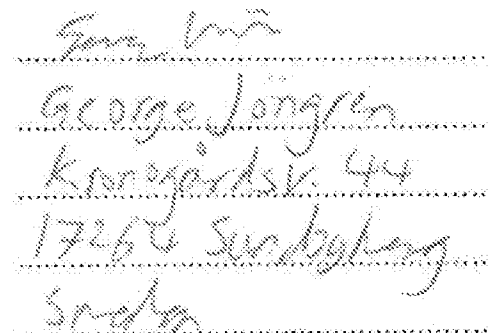 George Jöngren
Kronogårdsv. 44
17264 Sundbyberg